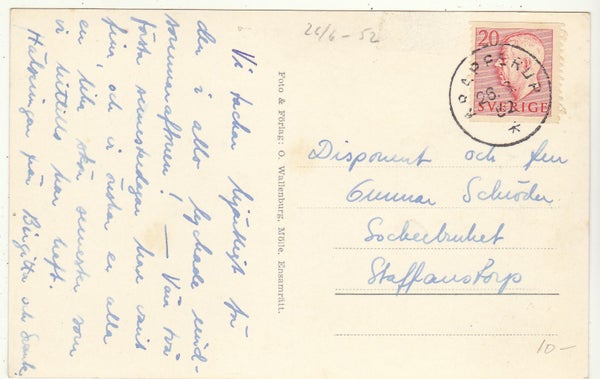 Vi tackar hjärtligt för
den i allo lyckade mid-
sommaraftonen! — Våra två
första semesterdagar har varit
fina, och vi önskar er alla
en lika skön semester som
vi hittills har haft.
Hälsningar från Birgitta och
26/6 - 52
Foto & Förlag: O. Wallenburg, Mölle. Ensamrätt.
20
SVERIGE
ARAPPERUP
26
Disponent och fru
Gunnar Schröder
Sockerbruket
Staffanstorp
10-